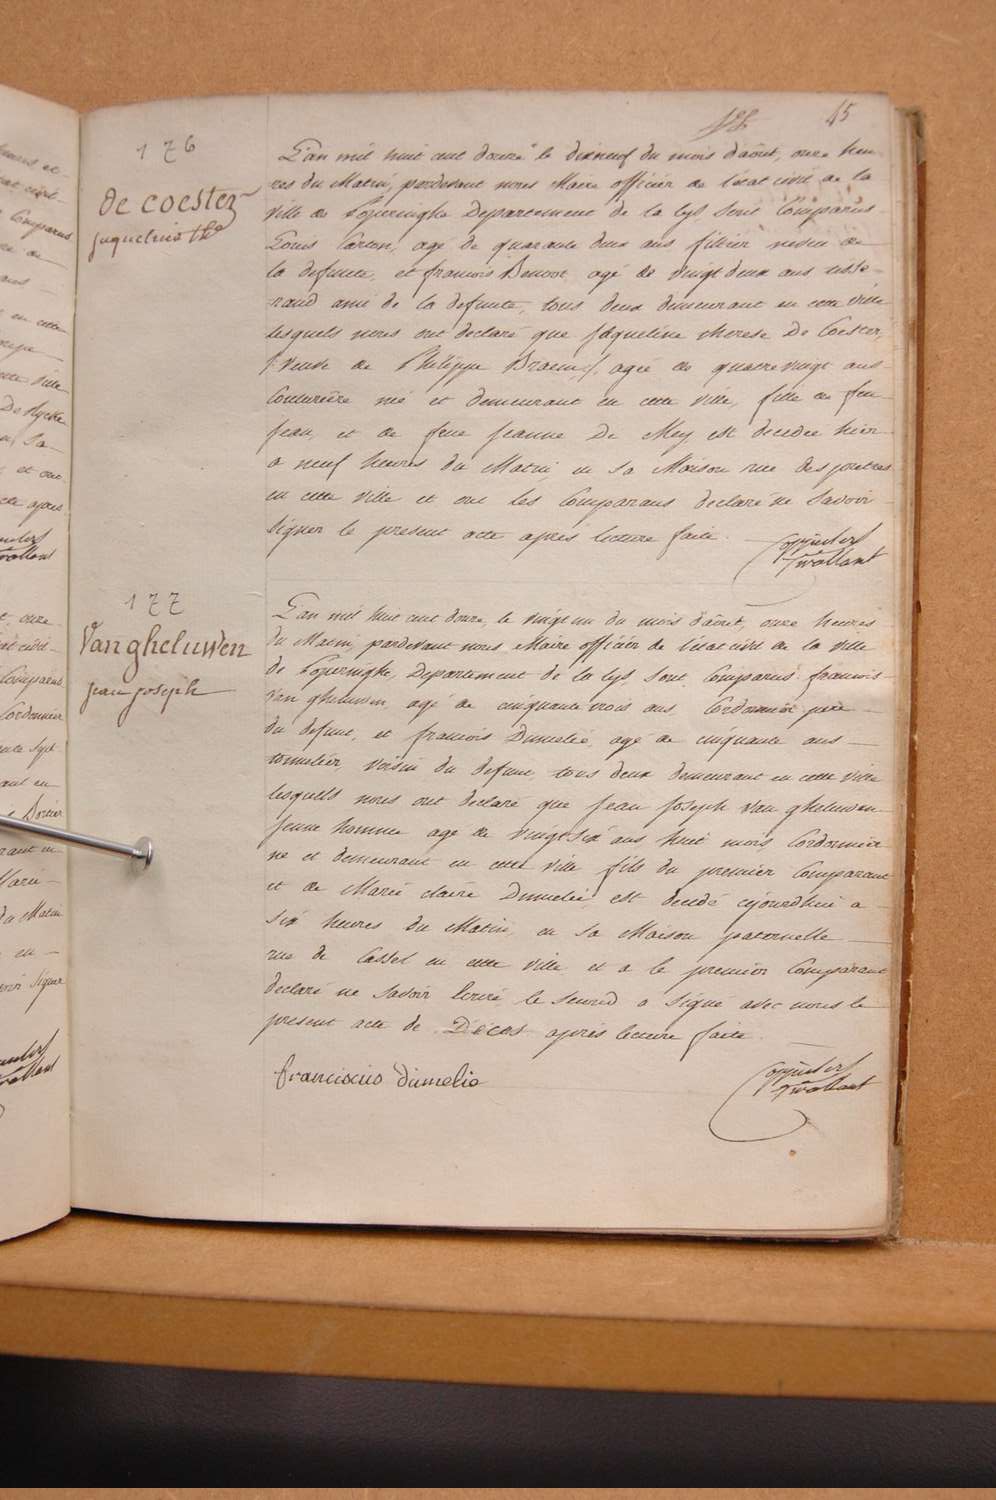 45
176
de coester
jaquelinne th.e
L'an mil huit cent douze le dixneuf du mois d'août, onze heu-
res du Matin, pardevant nous Maire officier de l'état civil de la
ville de Poperinghe Departement de la Lys sont Comparus
Louis Carton, agé de quarante deux ans filtier neveu de
la defunte, et francois Benoot agé de vingt deux ans tisse-
rand ami de la defunte, tous deux demeurant en cette ville
lesquels nous ont declaré que Jaqueline therese De Coester,
/: veuve de Philippe Braem :/ agée de quatre vingt ans
Couturière née et demeurant en cette ville, fille de feu
Jean, et de feue Jeanne De Mey est decedée hier
a neuf heures du Matin, en sa Maison rue des pretres
en cette ville et ont les Comparans declaré ne savoir
signer le present acte apres lecture faite.
177
Vangheluwen
jean joseph
L'an mil huit cent douze, le vingt un du mois d'août, onze heures
du Matin, pardevant nous Maire officier de l'état civil de la ville
de Poperinghe, Departement de la Lys, sont Comparus francois
Van gheluwen, agé de cinquante trois ans, Cordonnier pere
du defunt, et francois Dumelie, agé de cinquante ans
tonnelier, voisin du defunt, tous deux demeurant en cette ville
lesquels nous ont declaré que Jean Joseph Van gheluwen
Jeune homme agé de vingt six ans huit mois Cordonnier
né et demeurant en cette ville fils du premier Comparant
et de Marie claire Dumelie, est decedé cejourdhui a
six heures du Matin, en sa Maison paternelle
rue de Cassel en cette ville et a le premier Comparant
declaré ne savoir ecrire, le second a signé avec nous le
present acte de Décès apres lecture faite.
franciscus dumelie